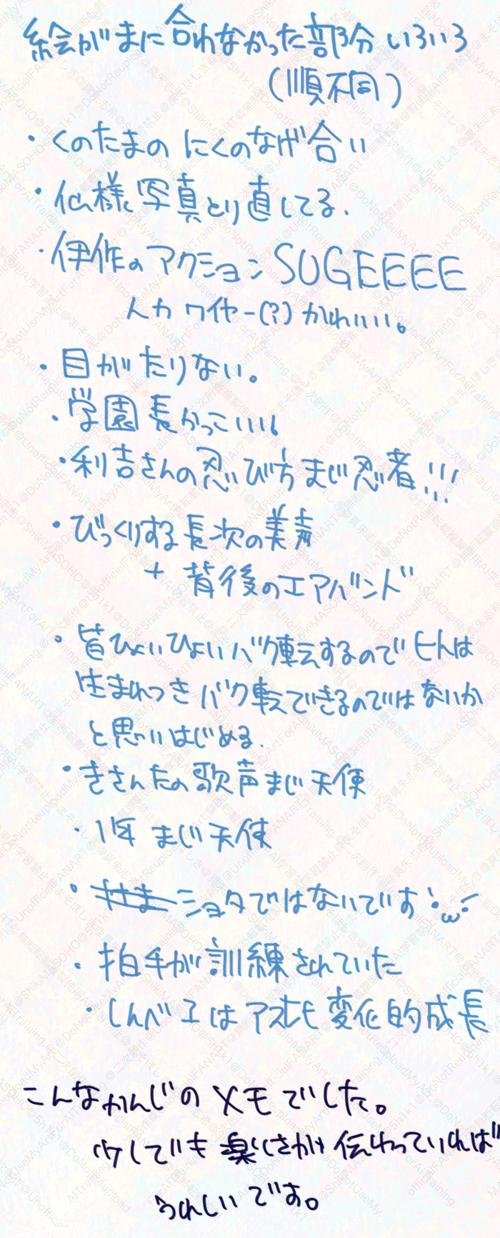 絵がまに合わなかった部分いろいろ
(順不同)
・くのたまの にくのなげ合い
・仏様写真とり直してる.
・伊作のアクションSUGEEEE
人力ワイヤー(?)かわいい。
・目がたりない。
・学園長かっこいい
・利吉さんの忍び方まじ忍者!!!
・びっくりする長次の美声
+ 背後のエアバンド
・皆ひょいひょいバク転するのでヒトは
生まれつきバク転できるのではないか
と思いはじめる.
・きさんたの歌声まじ天使
・1年まじ天使
・ショタではないです
・拍手が訓練されていた
・しんべヱは 変化的成長
こんなかんじのメモでした。
少しでも楽しさが伝わっていれば
うれしいです。